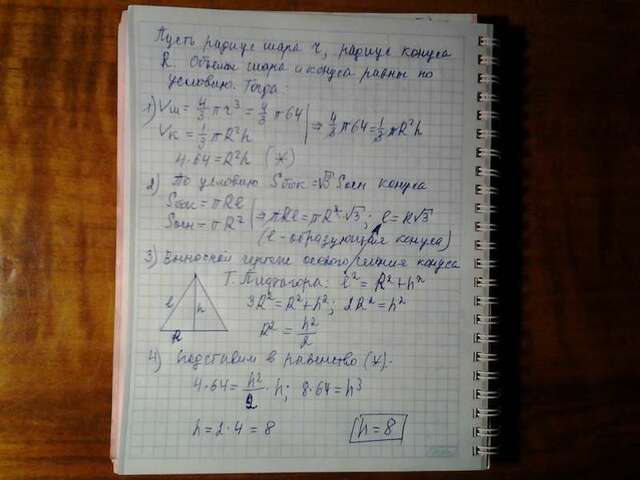 Пусть радиус шара r, радиус конуса
R. Объемы шара и конуса равны по
условию. Тогда:
1) Vш = 4/3 πr³ = 4/3 π64
Vк = 1/3 πR²h
⇒ 4/3 π64 = 1/3 πR²h
4·64 = R²h (*)
2) По условию Sбок = √3 Sосн конуса
Sбок = πRl
Sосн = πR²
⇒ πRl = πR²·√3; l = R√3
(l - образующая конуса)
3) Выносной чертеж осевого сечения конуса
Т. Пифагора: l² = R² + h²
l h
R
3R² = R² + h²; 2R² = h²
R² = h²/2
4) Подставим в равенство (*).
4·64 = h²/2 · h; 8·64 = h³
h = 2·4 = 8
h = 8